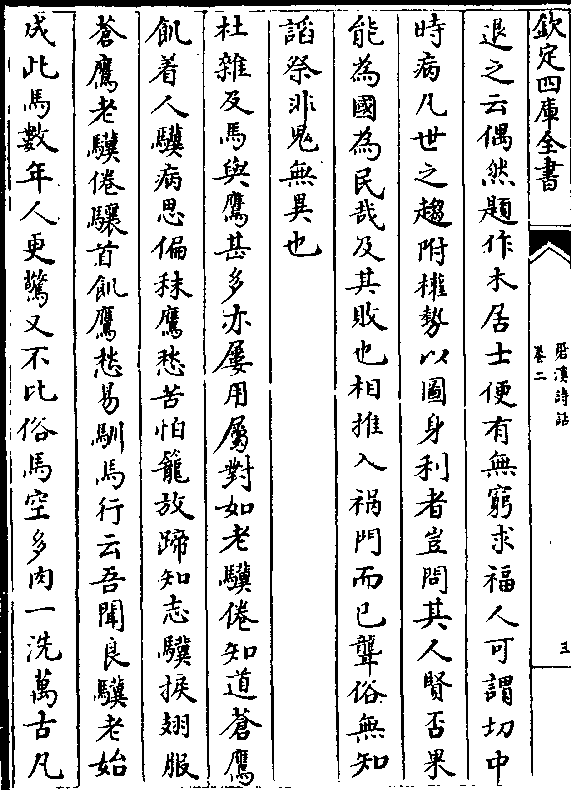 欽定四庫全書
䂬溪詩話
卷二
三
退之云偶然題作木居士便有無窮求福人可謂切中
時病凡世之趨附權勢以圖身利者豈問其人賢否果
能為國為民哉及其敗也相推入禍門而已聾俗無知
謟祭非鬼無異也
杜雜及馬與鷹甚多亦屢用屬對如老驥倦知道蒼鷹
飢着人驥病思偏秣鷹愁苦怕籠放蹄知志驥捩翅服
蒼鷹老驥倦驤首飢鷹愁易馴馬行云吾聞良驥老始
成此馬數年人更驚又不比俗馬空多肉一洗萬古凡